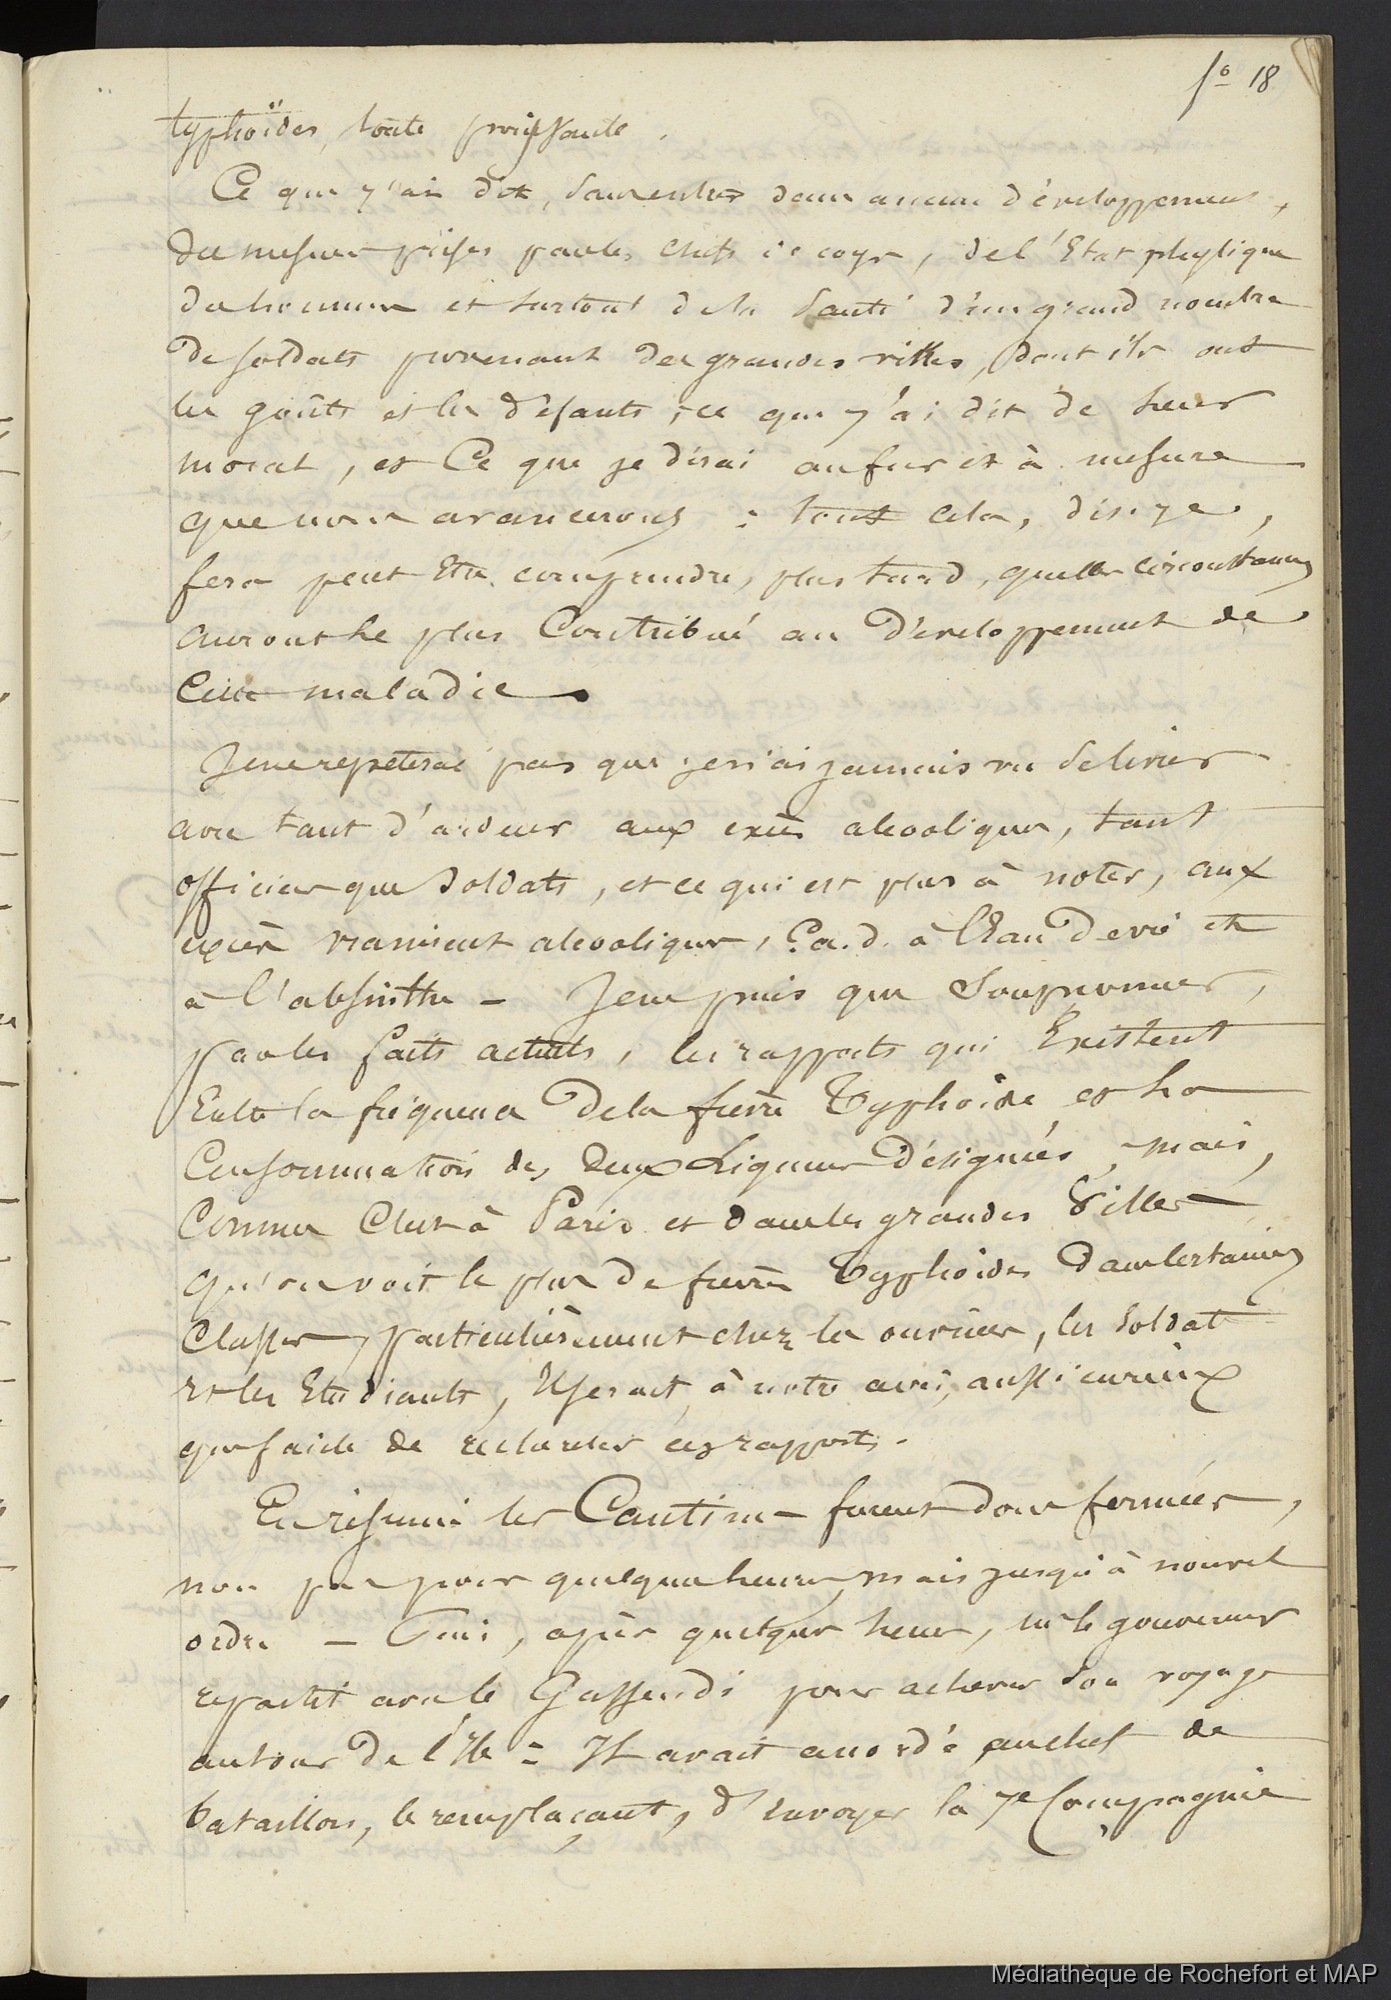 fo 18
typhoïdes, toute puissante.
Ce que j'ai dit, sans entrer dans aucun développement,
des mesures prises par les chefs de corps, de l'état physique
des hommes et surtout de la santé d'un grand nombre
de soldats provenant des grandes villes, dont ils ont
les goûts et les défauts, ce que j'ai dit de leur
moral, et ce que je dirai au fur et à mesure
que nous avancerons : tout cela, dis-je,
fera peut être comprendre, plus tard, quelles circonstances
auront le plus contribué au développement de
cette maladie.
Je ne repeterai pas que je n'ai jamais vu se livrer
avec tant d'ardeur aux excès alcooliques, tant
officiers que soldats, et ce qui est plus à noter, aux
excès vraiment alcooliques, C.a.d. à l'Eau de vie et
à l'absinthe – Je ne puis que soupçonner,
par les faits actuels, les rapports qui existent
entre la fréquence de la fièvre typhoïde et la
consommation des deux liqueurs désignées, mais,
comme c'est à Paris et dans les grandes villes
qu'on voit le plus de fièvres typhoïdes dans certaines
classes, particulièrement chez les ouvriers, les soldats
et les étudiants, il serait, à notre avis, aussi curieux
que facile de rechercher ces rapports.
En résumé les Cantines furent donc fermées,
non pas pour quelques heures, mais jusqu'à nouvel
ordre – Puis, après quelques heures, mr le gouverneur
repartit avec le Gassendi pour achever son voyage
autour de l'Ile = Il avait accordé, au chef de
bataillon, le remplaçant, d'envoyer la 7e Compagnie
Médiathèque de Rochefort et MAP